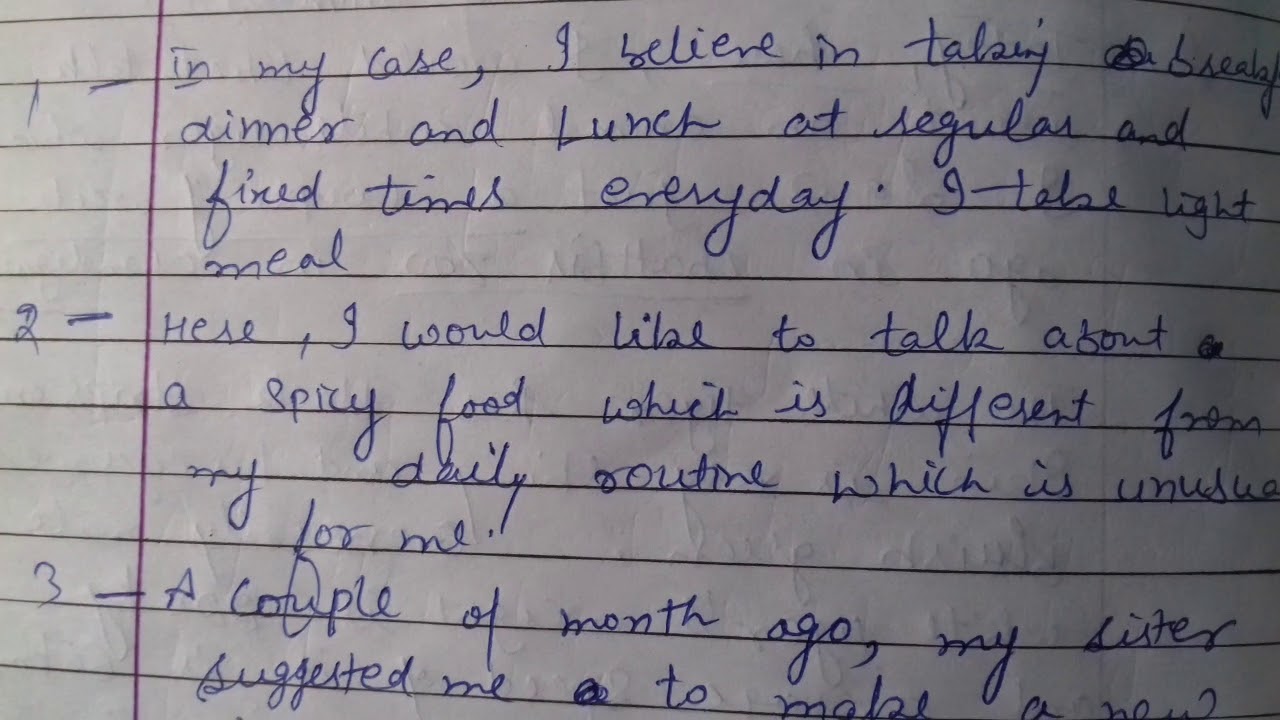 1 - In my case, I believe in taking break
dinner and Lunch at regular and
fixed times everyday. I take light
meal
2 - Here, I would like to talk about
a spicy food which is different from
my daily routine which is unusua
for me.
3 - A couple of month ago, my sister
suggested me to make a new